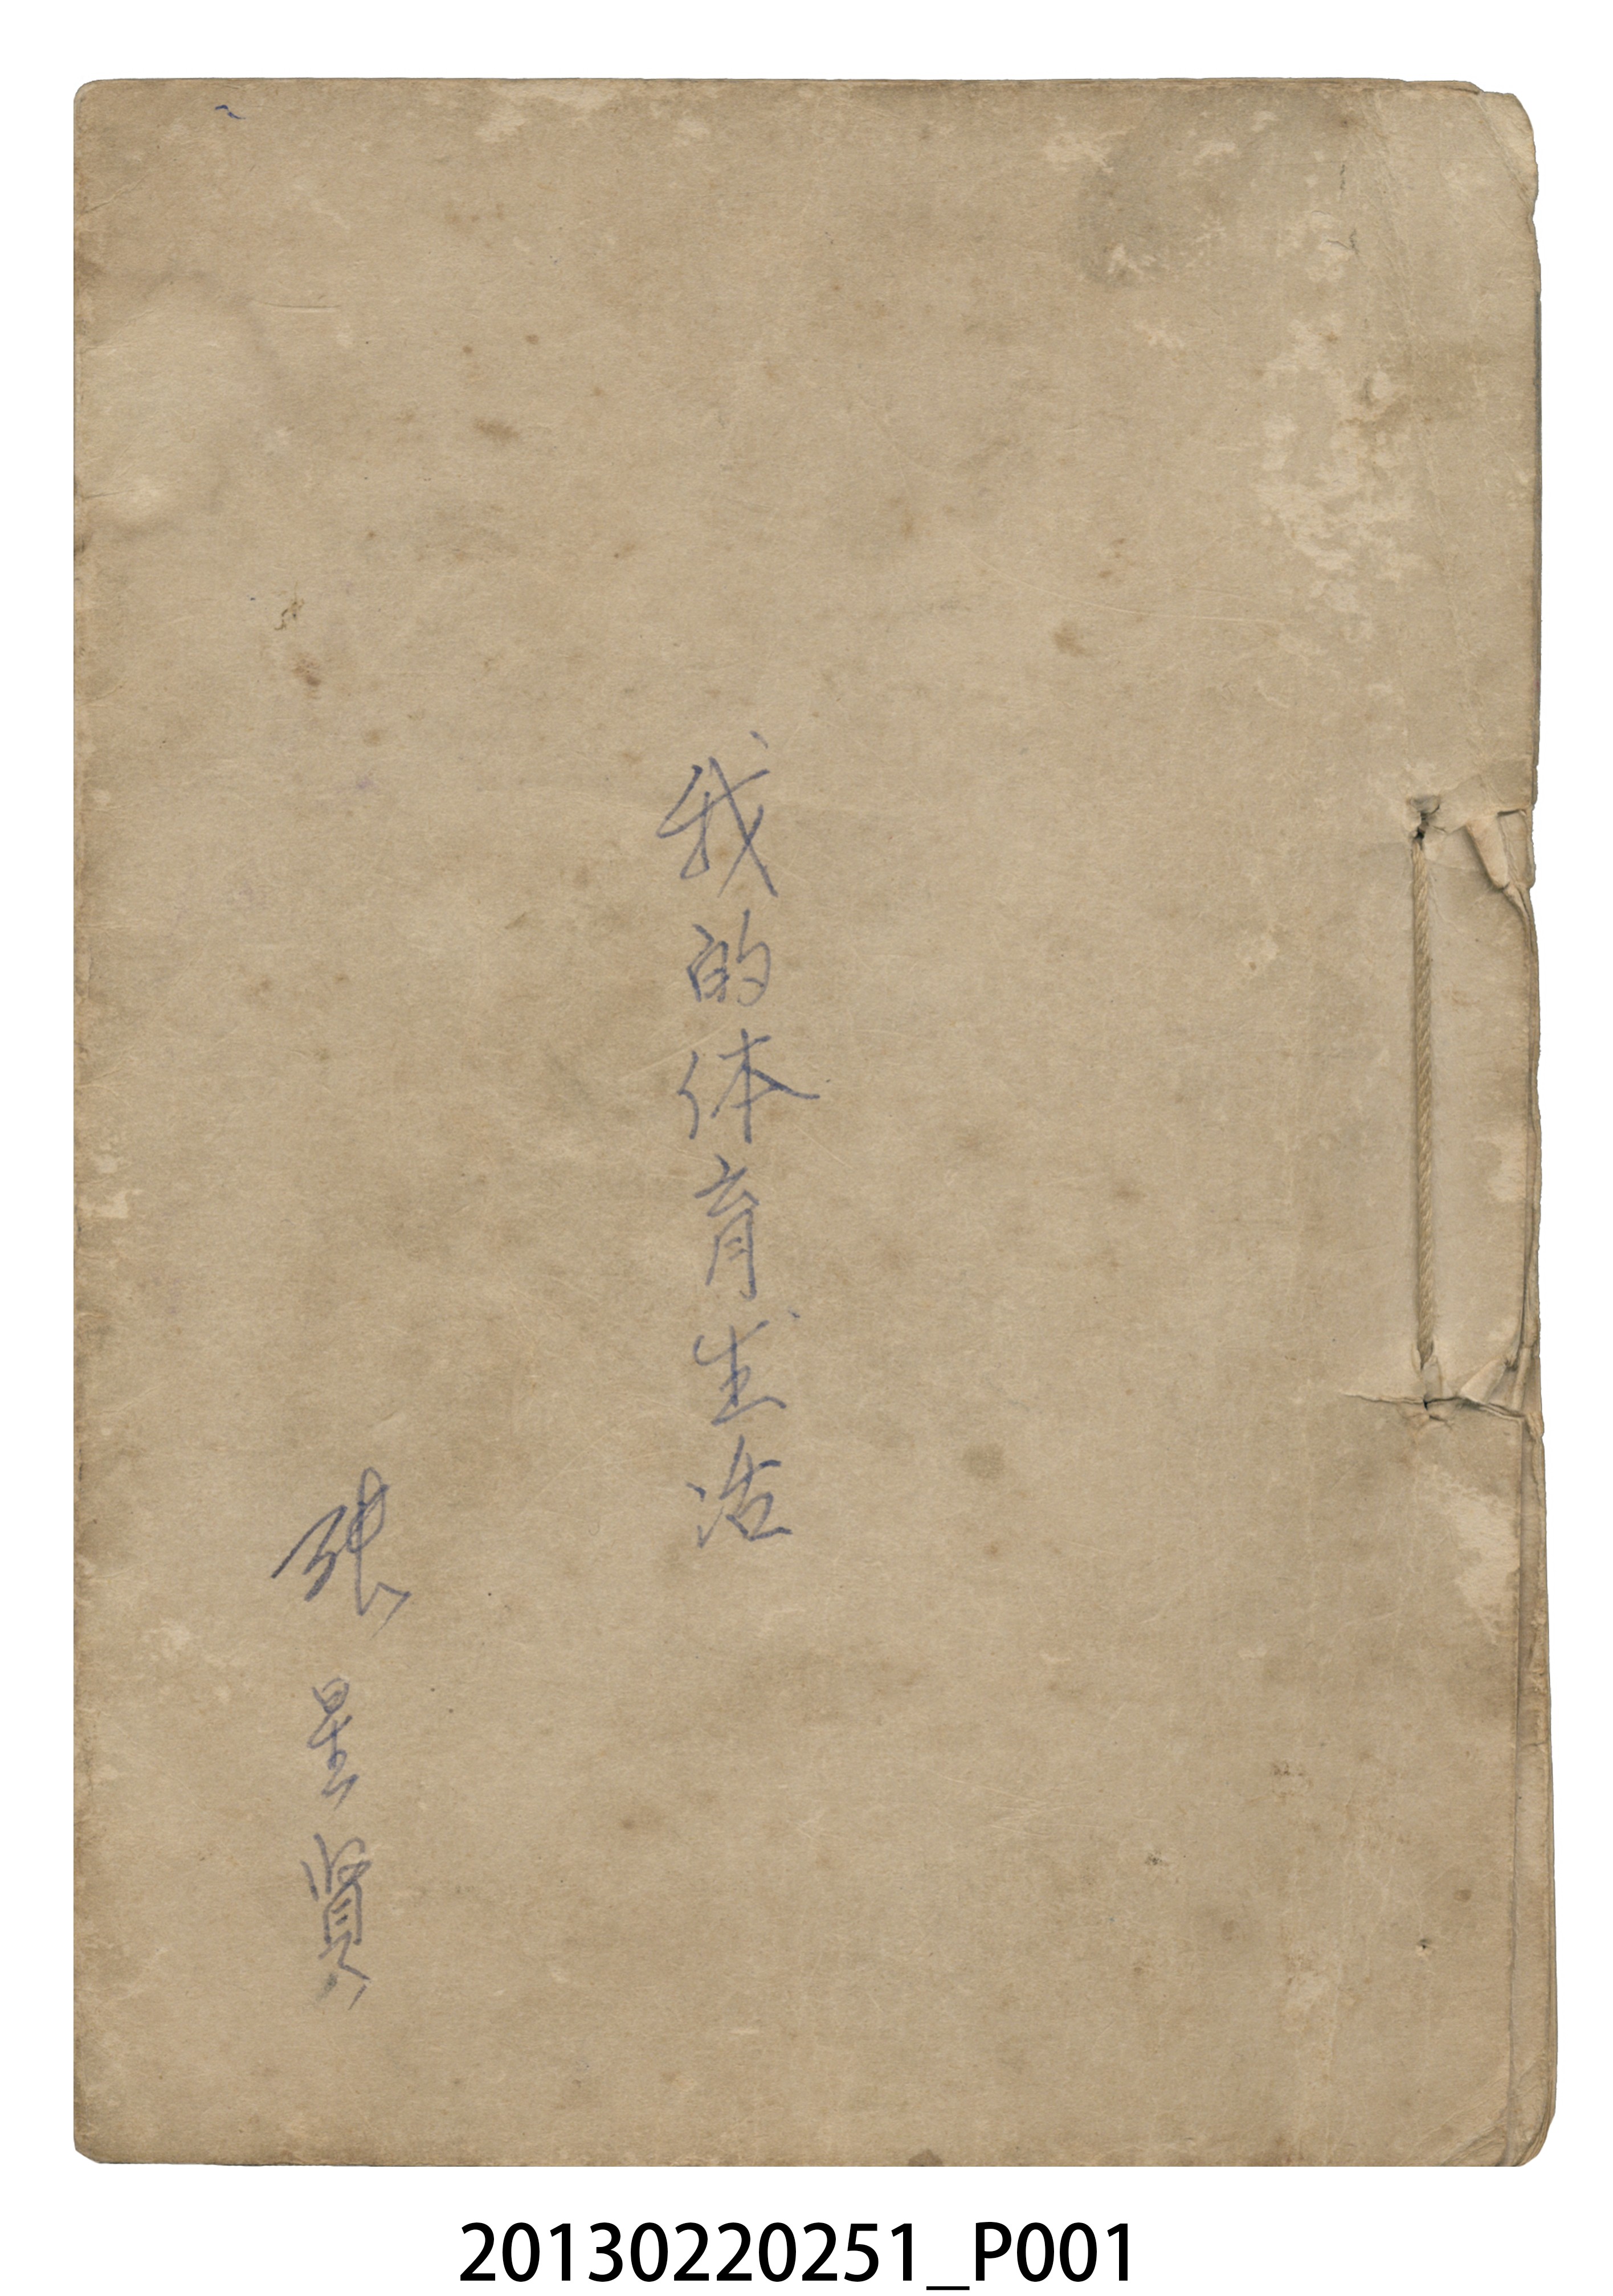 我的体育生活
张星賢
20130220251_P001